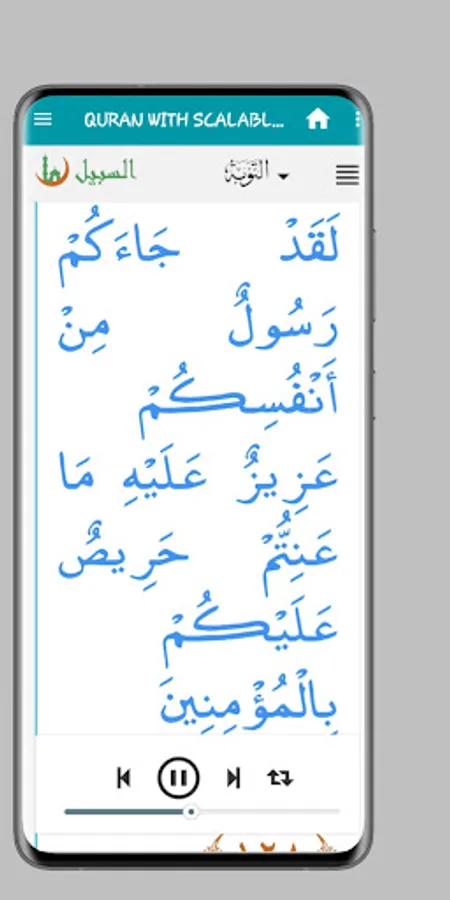 QURAN WITH SCALABL...
السبيل
التوبة
لَقَدْ جَاءَكُمْ
رَسُولٌ مِنْ
أَنْفُسِكُمْ
عَزِيزٌ عَلَيْهِ مَا
عَنِتُّمْ حَرِيصٌ
عَلَيْكُمْ
بِالْمُؤْمِنِينَ